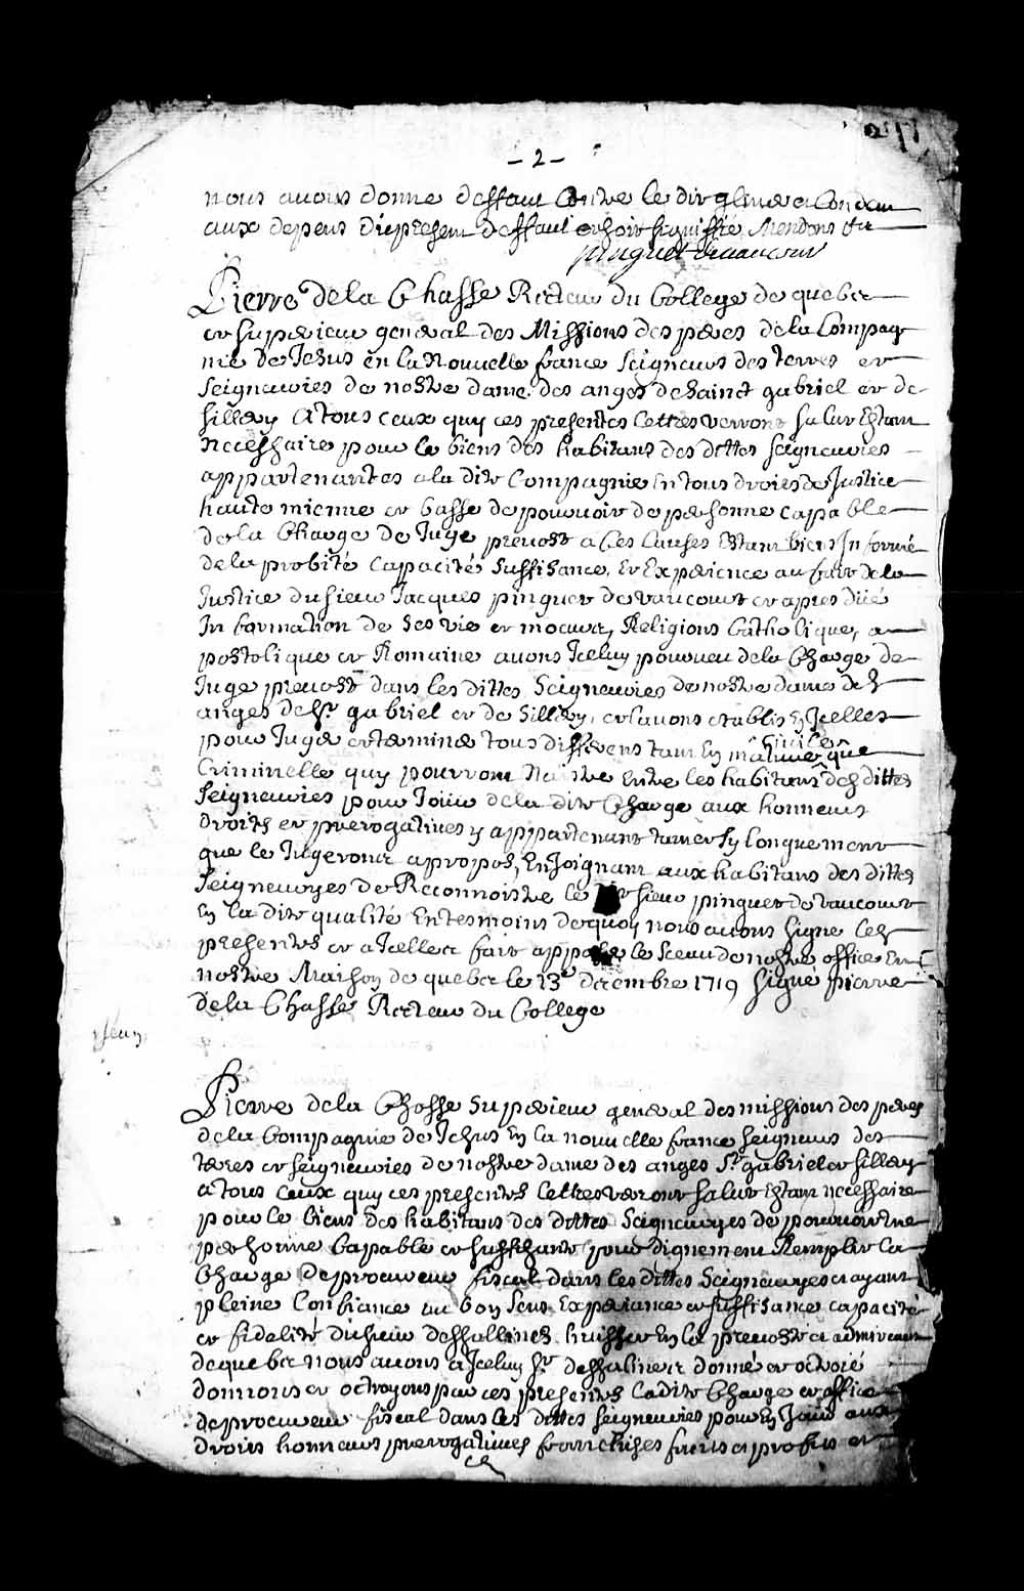 - 2 -
nous avons donne deffaut Contre le dit et Conden
aux depens du present deffaut et soit signiffié Mendons &a
pinguet de vaucour
Pierre de la Chasse Recteur du College de quebec
et superieur general des Missions des peres de la Compag
nie de Jesus en la Nouvelle france Seigneurs des terres et
Seigneuries de nostre dame des anges de sainct gabriel et de
sillery A tous ceux quy ces presentes lettres verront salut Estant
necessaire pour le biens des habitans des dittes seigneuries
appartenantes a la dite Compagnie en tous droies de Justice
haute mienne et basse de pourvoir de personne capable
de la Charge de Juge prevost a Ces Causes Estant bien Informé
de la probité Capacité Suffisance, Et Experience au fait de la
Justice du sieur Jacques pinguet de vaucourt et apres
Information de Ses vie et moeurs, Religions Catholique, a
postolique et Romaine avons Iceluy pourveu de la Charge de
Juge prevost dans les dittes Seigneuries de nostre dame des
anges de St gabriel et de Sillery, et l'avons etablis en Icelles
pour Juger et terminer tous differens tant En matiere civiles que
Criminelle quy pourront Naistre Entre les habitans des dittes
Seigneuries pour Joüir de la dite Charge aux honneurs
droits et prerogatives y appartenant tant et sy longuement
que le Jugerons apropos, Enjoignant aux habitans des dittes
Seigneuryes de Reconnoistre le sieur pinguet de vaucourt
En la dite qualité En tesmoins de quoy nous avons signe Ces
presentes et a Icelles fait apposer le sceau de nostre office En
nostre Maison de quebec le 13e decembre 1719 Signé pierre
de la Chasse Recteur du College
Pierre de la Chasse Superieur general des missions des peres
de la Compagnie de Jesus En la nouvelle france Seigneurs des
terres et seigneuries de nostre dame des anges St gabriel et sillery
a tous Ceux quy ces presentes lettres veront salut Estant necessaire
pour le biens des habitans des dittes Seigneuryes de pourvoir une
personne Capable et suffisante pour dignement Remplir la
Charge de procureur fiscal dans les dittes Seigneuryes et ayant
pleine Confiance au bon sens Experiance et suffisance capacité
et fidelité du sieur dessallines huissier En la prevosté et admirauté
de quebec nous avons a Iceluy Sr dessalines donné et octroié
donnons et octroyons par ces presentes la dite Charge et office
de procureur fiscal dans les dittes seigneuries pour En Jouir aux
droits honneurs prerogatives franchises fruits et profits et